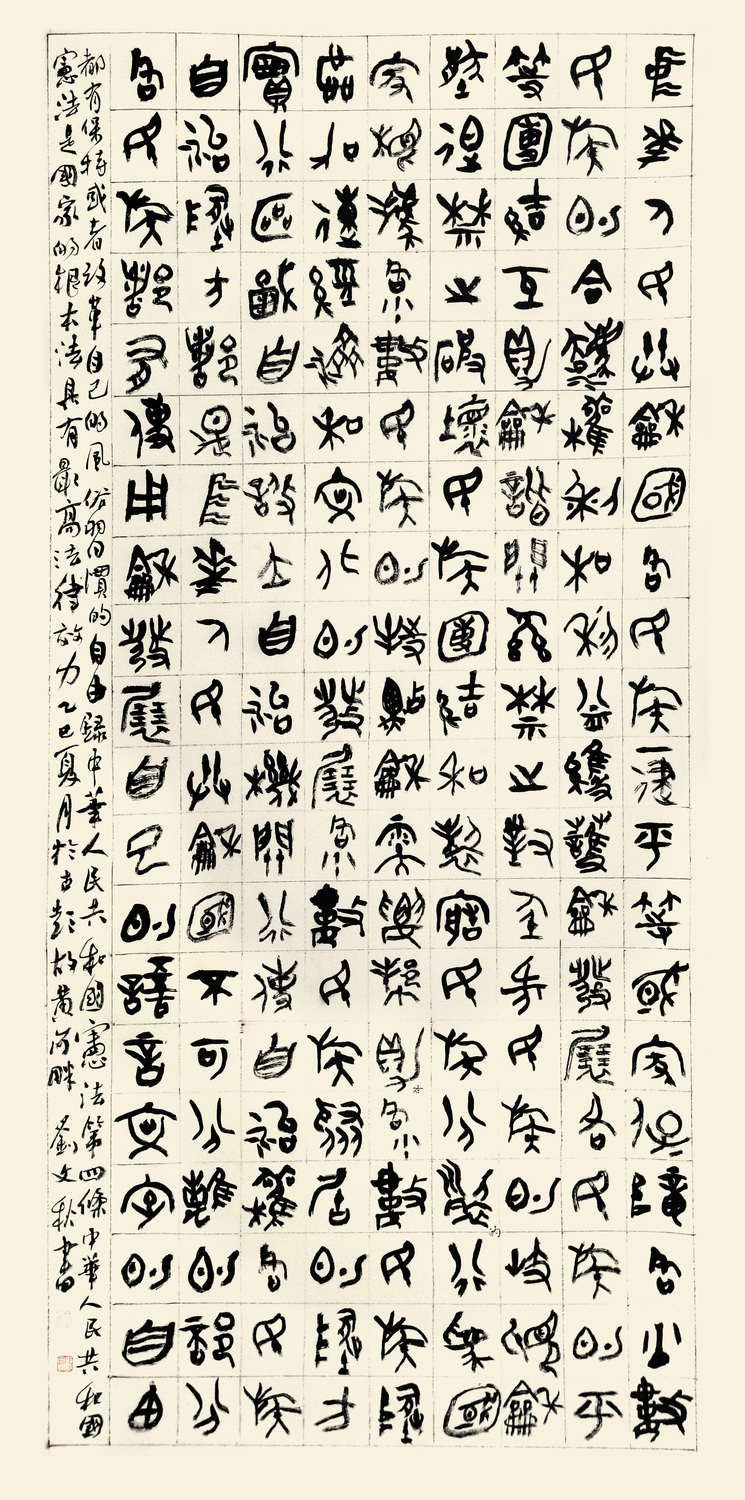 中華人民共和國各民族一律平等國家保障各少數
民族的合法權利和利益維護和發展各民族的平
等團結互助和諧關係禁止對任何民族的歧視和
壓迫禁止破壞民族團結和製造民族分裂的行為國
家根據各少數民族的特點和需要幫助各少數民族地
區加速經濟和文化的發展各少數民族聚居的地方
實行區域自治設立自治機關行使自治權各民族
自治地方都是中華人民共和國不可分離的部分
各民族都有使用和發展自己的語言文字的自由
都有保持或者改革自己的風俗習慣的自由錄中華人民共和國憲法第四條中華人民共和國
憲法是國家的根本法具有最高法律效力乙巳夏月於古彭故黃河畔劉文秋書